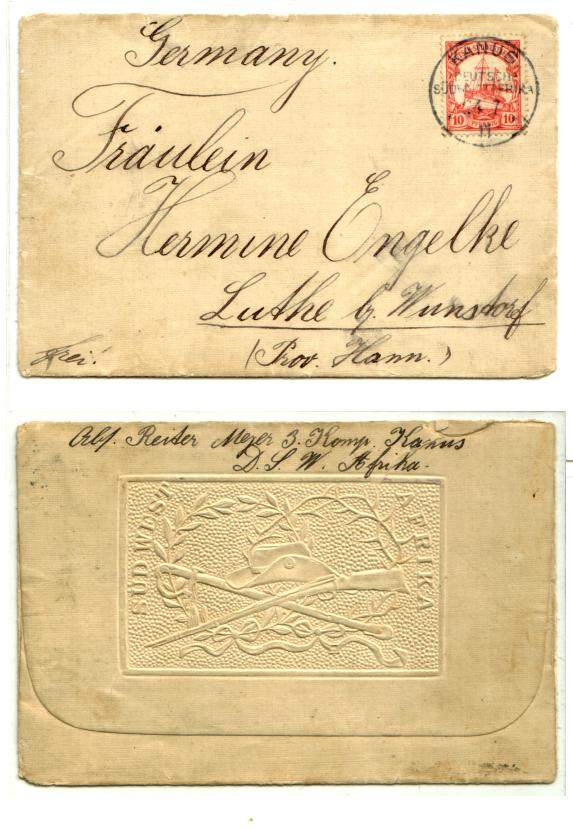 Germany.
KANUS
DEUTSCH-
SÜDWESTAFRIKA
4 7
11
10 PFENNIG 10
Fräulein
Hermine Engelke
Luthe b. Wunstorf
(Prov. Hann.)
Frei!
Abs. Reiter Meyer 3. Komp. Kanus
D. S. W. Afrika.
SÜDWEST
AFRIKA